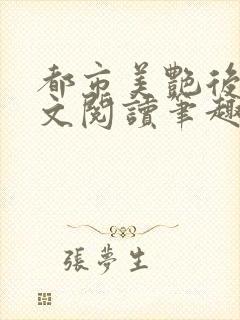 都市美艷後
文閱讀筆趣
張夢生